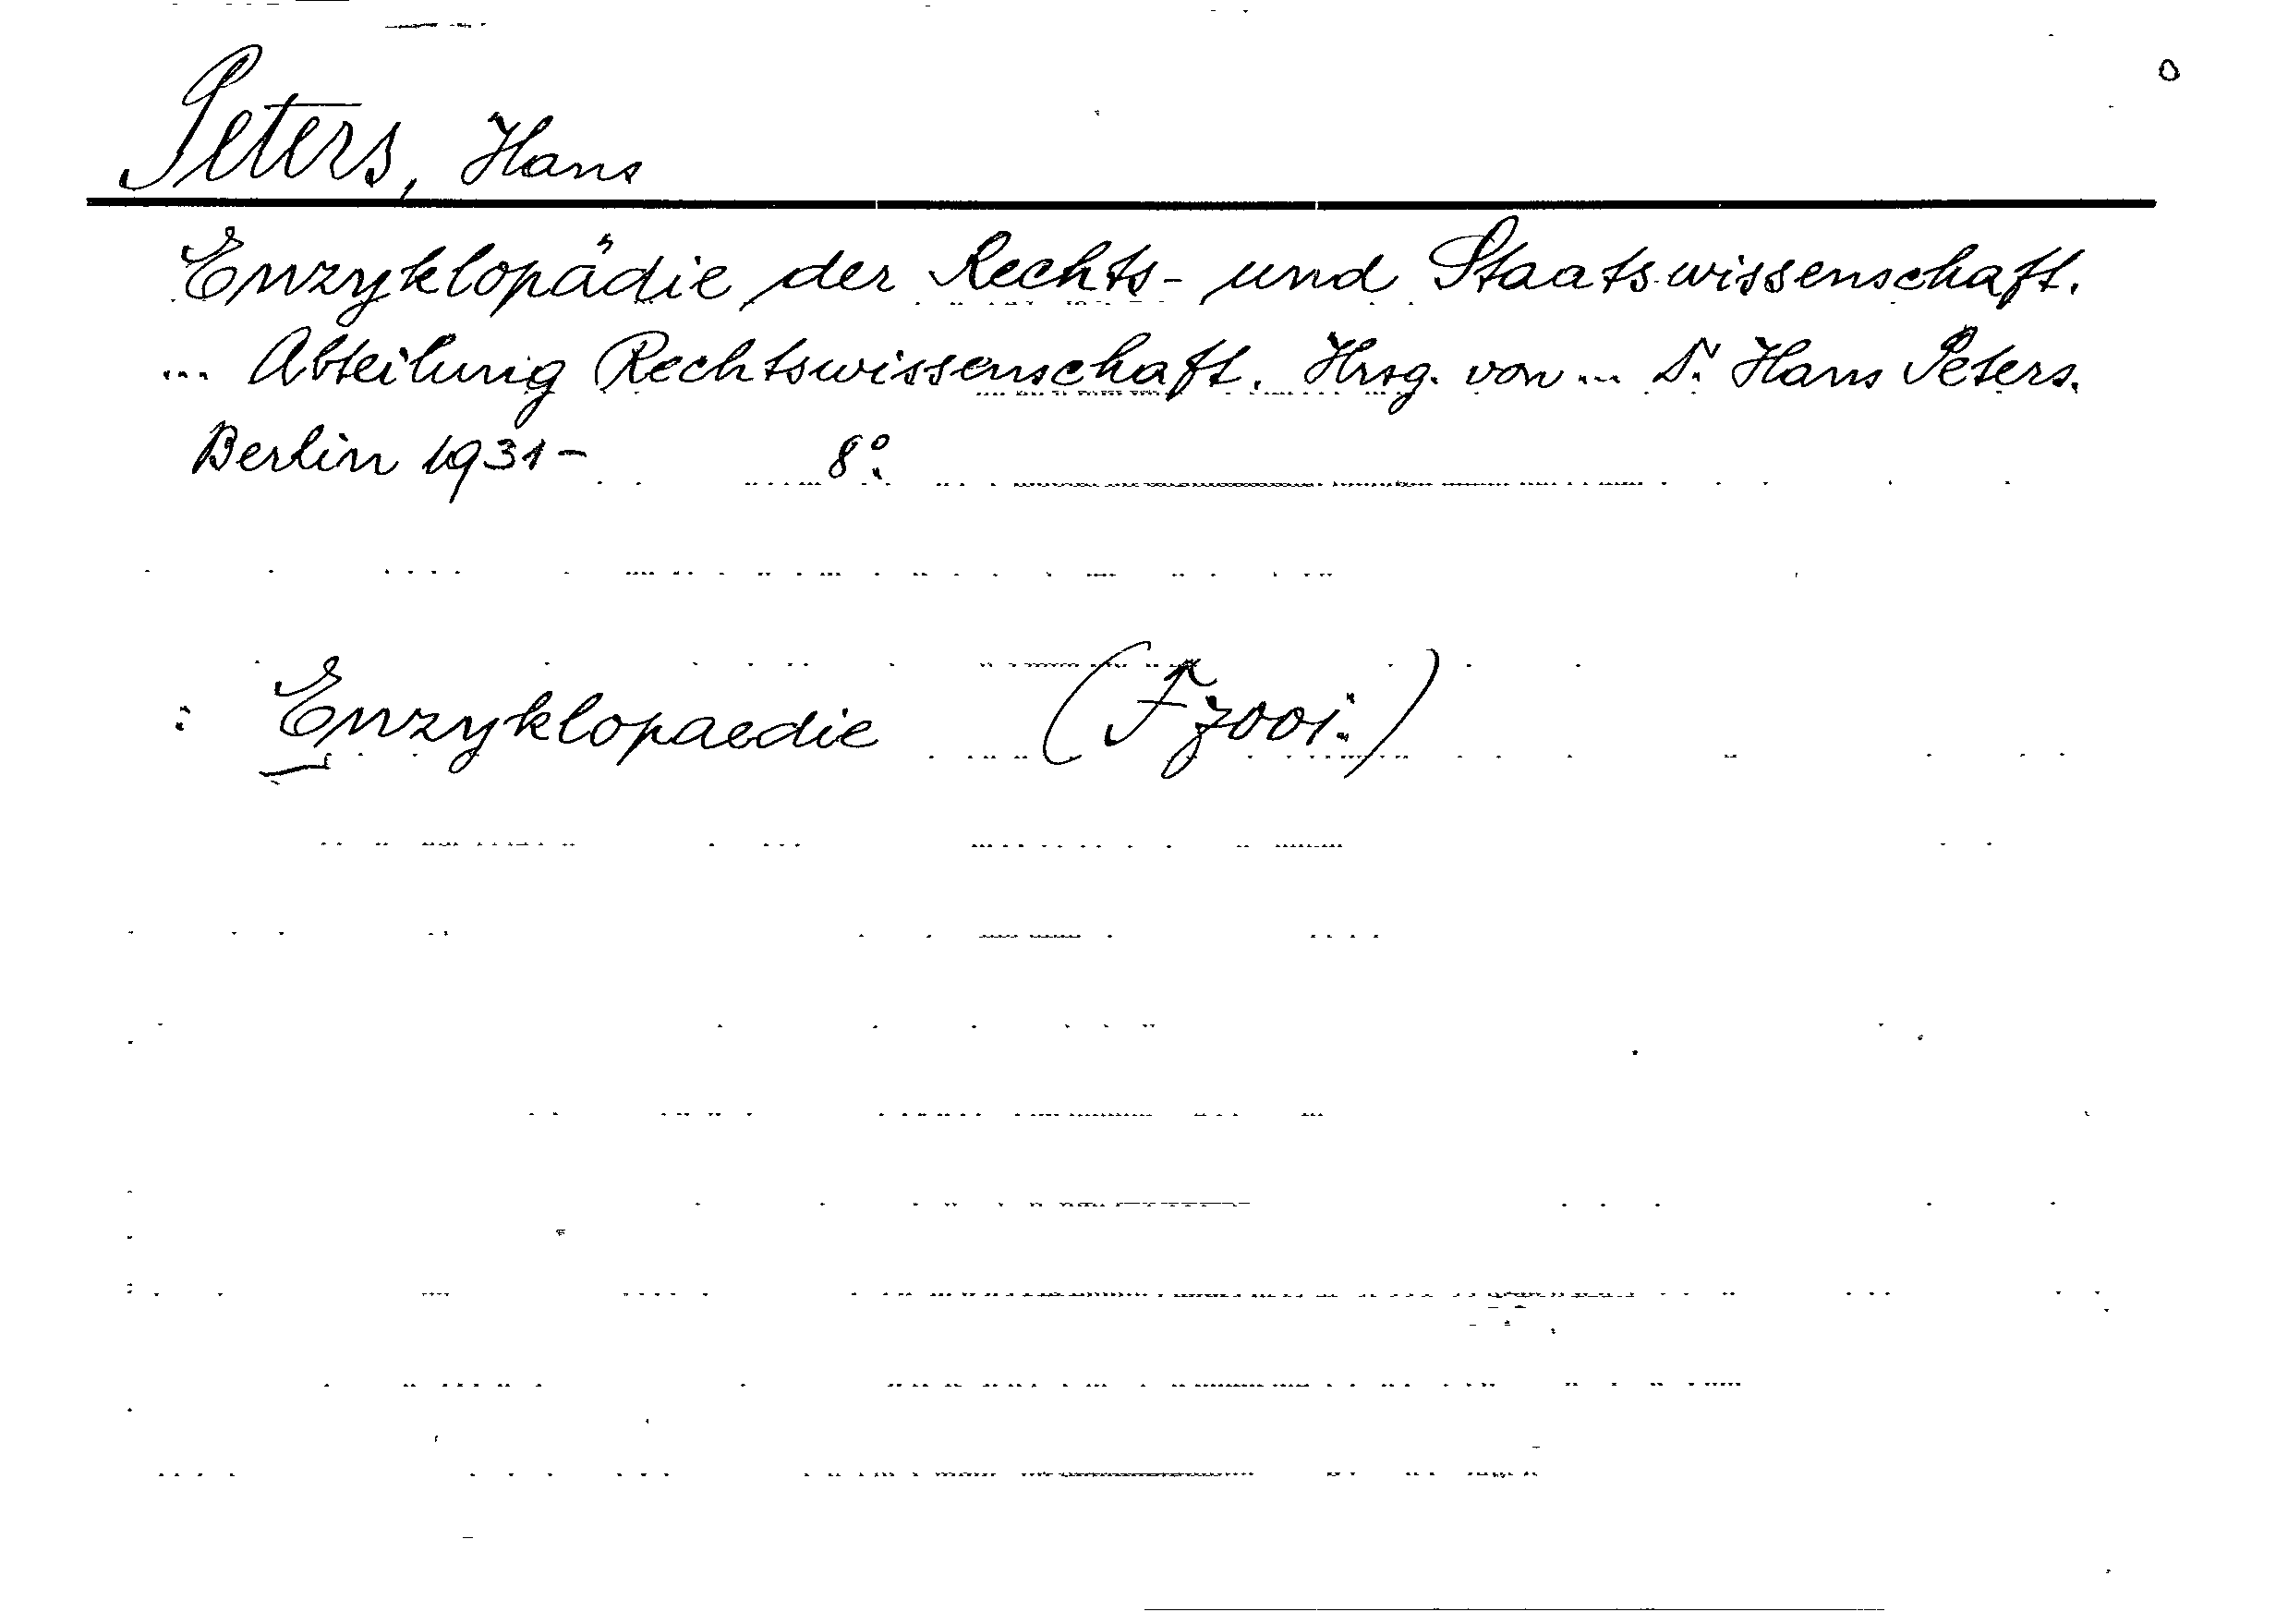 Peters, Hans
Enzyklopädie der Rechts- und Staatswissenschaft.
... Abteilung Rechtswissenschaft. Hrsg. von ... Dr. Hans Peters.
Berlin 1931- 8°.
: Enzyklopaedie